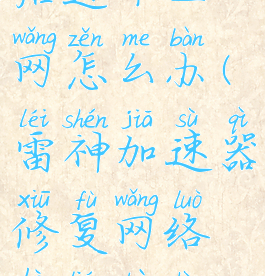 wǎng zěn me bàn
网怎么办(
léi shén jiā sù qì
雷神加速器
xiū fù wǎng luò
修复网络